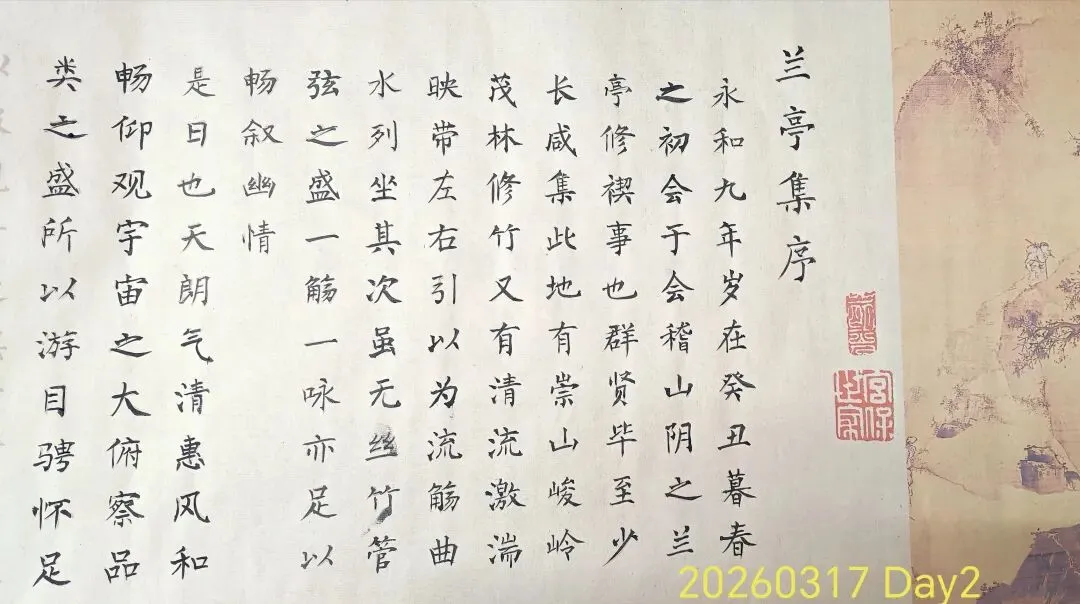 兰亭集序
永和九年岁在癸丑暮春
之初会于会稽山阴之兰
亭修禊事也群贤毕至少
长咸集此地有崇山峻岭
茂林修竹又有清流激湍
映带左右引以为流觞曲
水列坐其次虽无丝竹管
弦之盛一觞一咏亦足以
畅叙幽情
是日也天朗气清惠风和
畅仰观宇宙之大俯察品
类之盛所以游目骋怀足
宫保
20260317 Day2